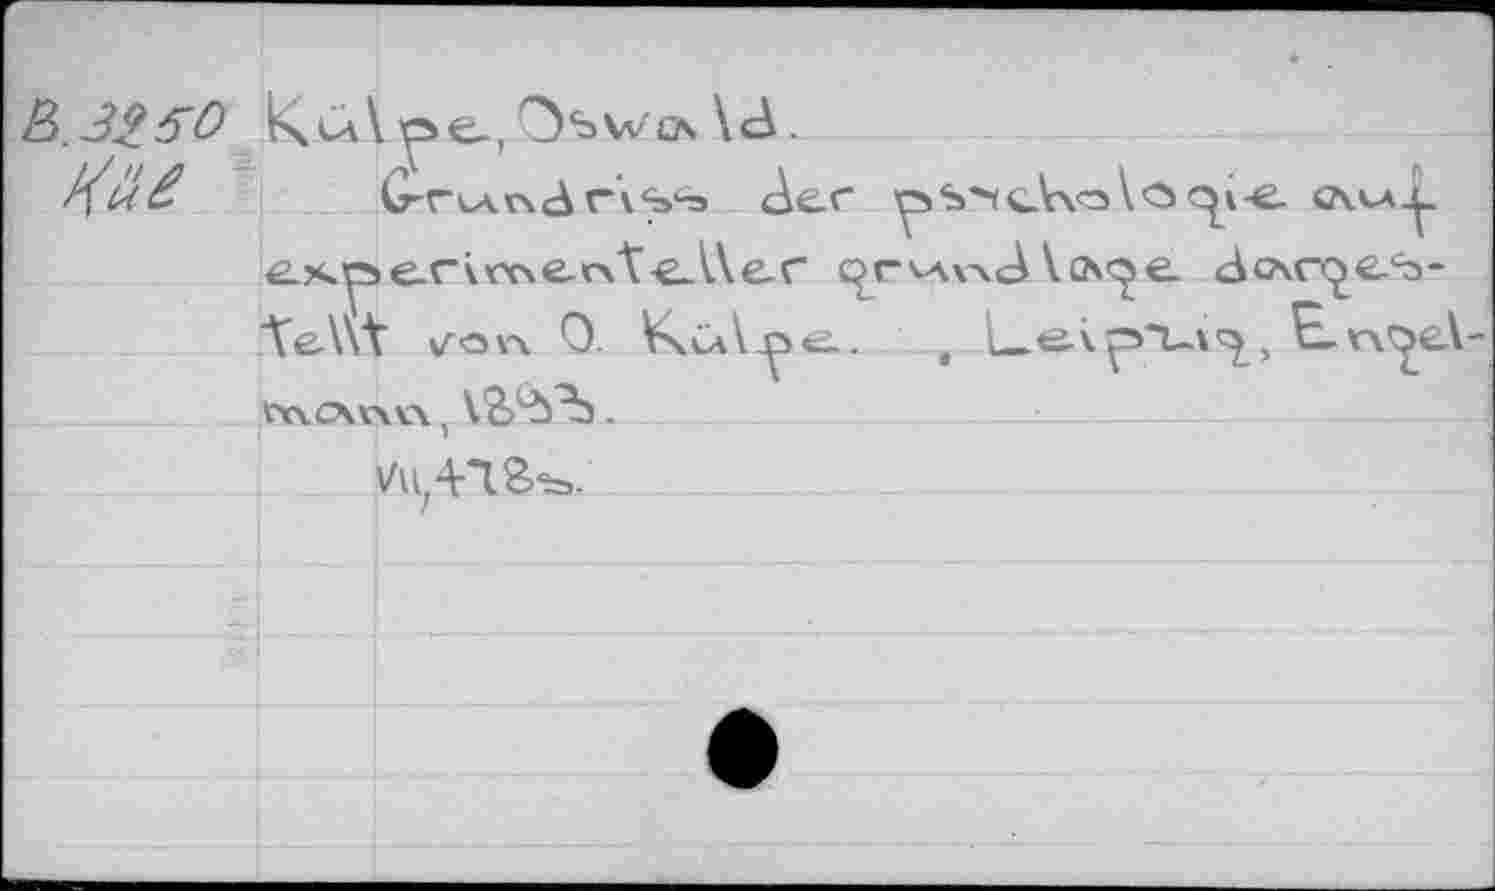 B.3250 Külpe, Oswald.
Kül
Grundriss der psychologie auf
experimenteller grundlage darges-
tellt von O. Külpe. . Leipzig, Engel-
mann, 1893.
vii,478s.